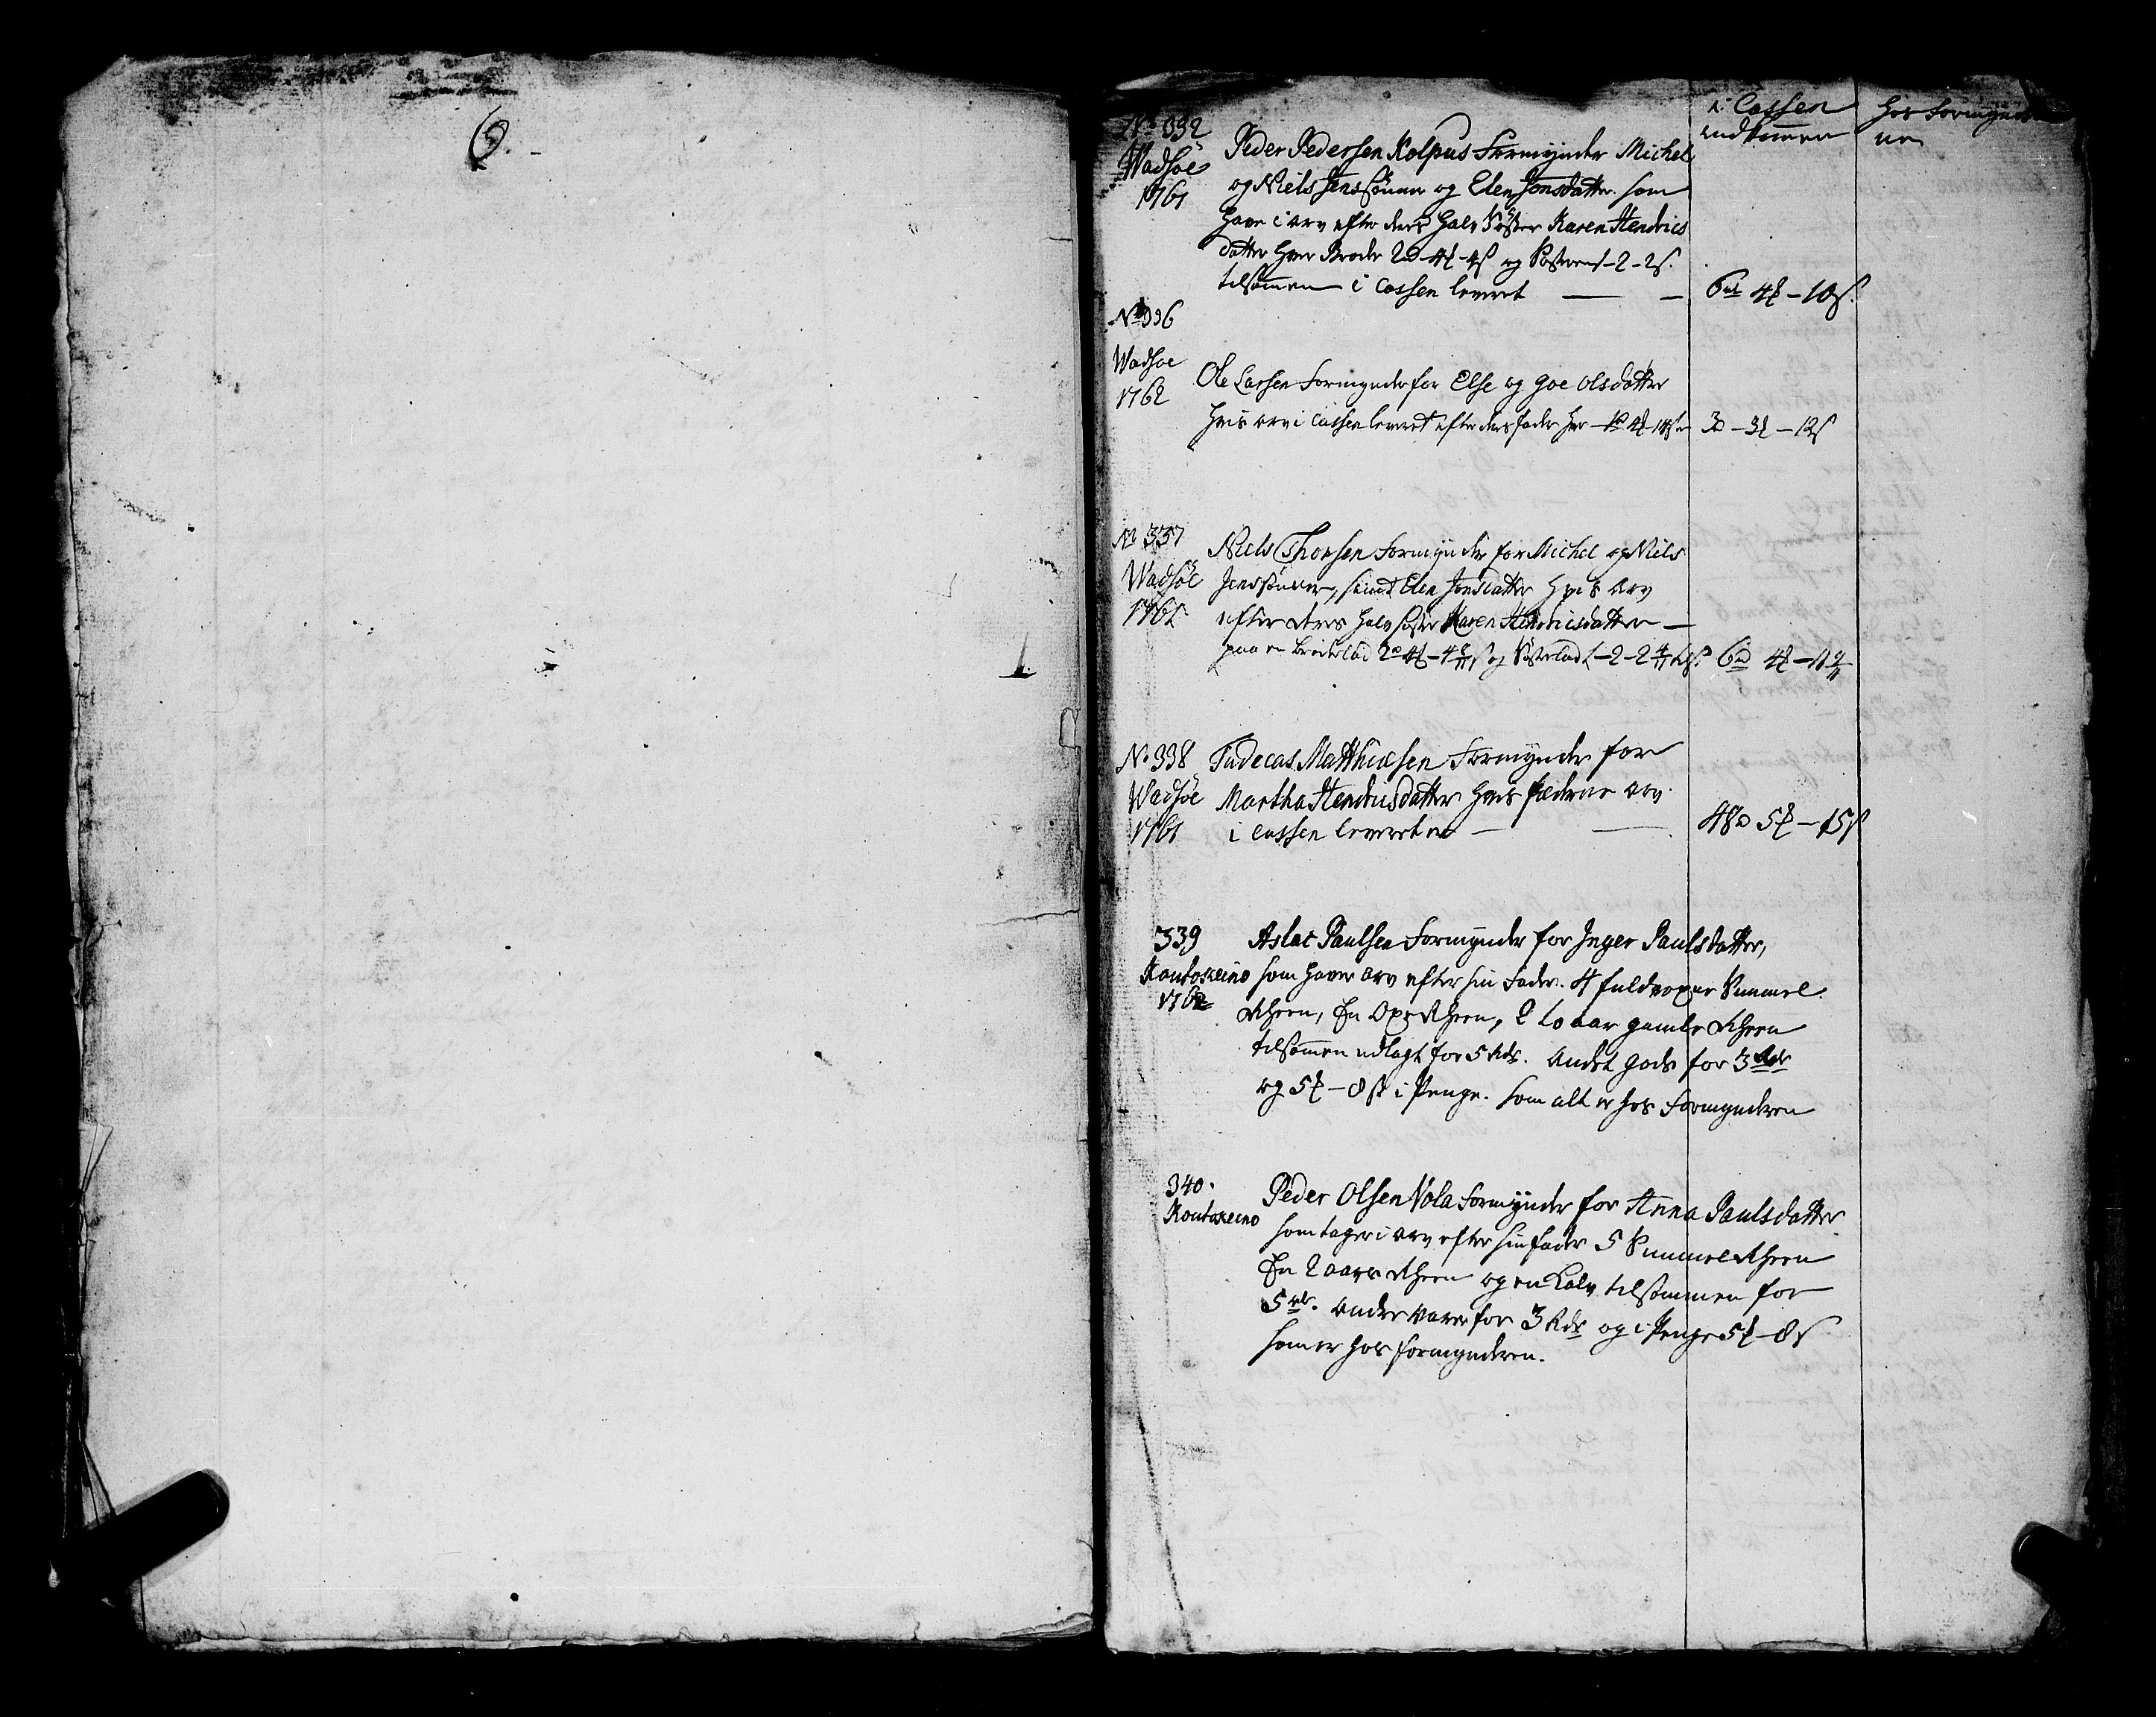 6.
i Cassen
indkommen
hos Formynder
ne
No 332
Wadsöe
1761
Peder Pedersen Kolpus Formynder Michel
og Niels Jenssönner og Elen Jensdatter som
have i arv efter deres halv Söster Karen Hendrics
datter hver Broder 2 rd - 4 ʒ - 4 s og Sösteren 1 - 2 - 2 s.
tilsammen i Cassen leveret — — 6 rd 4 ʒ - 10 s.
No 336
Wadsoe
1762
Ole Larsen Formynder for Else og Goe Olsdatter
hvis arv i Cassen leveret efter deres fader hver 4 ʒ er 3 d - 3 ʒ - 12 s
No 337
Wadsöe
1761
Niels Thorsen Formynder for Michel og Niels
Jenssönner, samt Elen Jensdatter hvis Arv
efter deres halv söster Karen Hendricsdatter —
paa en broderlod 2 d 4 ʒ - 4 8/11 s og Sösterlod 1 - 2 - 2 4/11 s 6 d 4 ʒ - 11 9/11
No 338
Wadsöe
1761
Tudecas Matthiesen Formynder for
Martha Hendricsdatter hvis fæderne arv
i Cassen leveret er — — 48 d 5 ʒ - 15 s
339
Koutokeino
1762
Aslac Paulsen Formynder for Inger Paulsdatter,
som haver arv efter sin Fader. 4 fuldvoxne Simmel
Rheen, En Oxe Rheen, 2 to aar gamle Rheen
tilsammen udlagt for 5 Rdr. Andet gods for 3 Rdr
og 5 ʒ - 8 s i Penge. som alt er hos Formynderen
340.
Koutokeino
Peder Olsen Vola Formynder for Anna Paulsdatter
som tager i arv efter sin fader 5 Simmel Rheen
En 2 aars Rheen og en Kalv tilsammen for
5 rdr. andre varer for 3 Rdr og i Penge 5 ʒ - 8 s
som er hos formynderen.